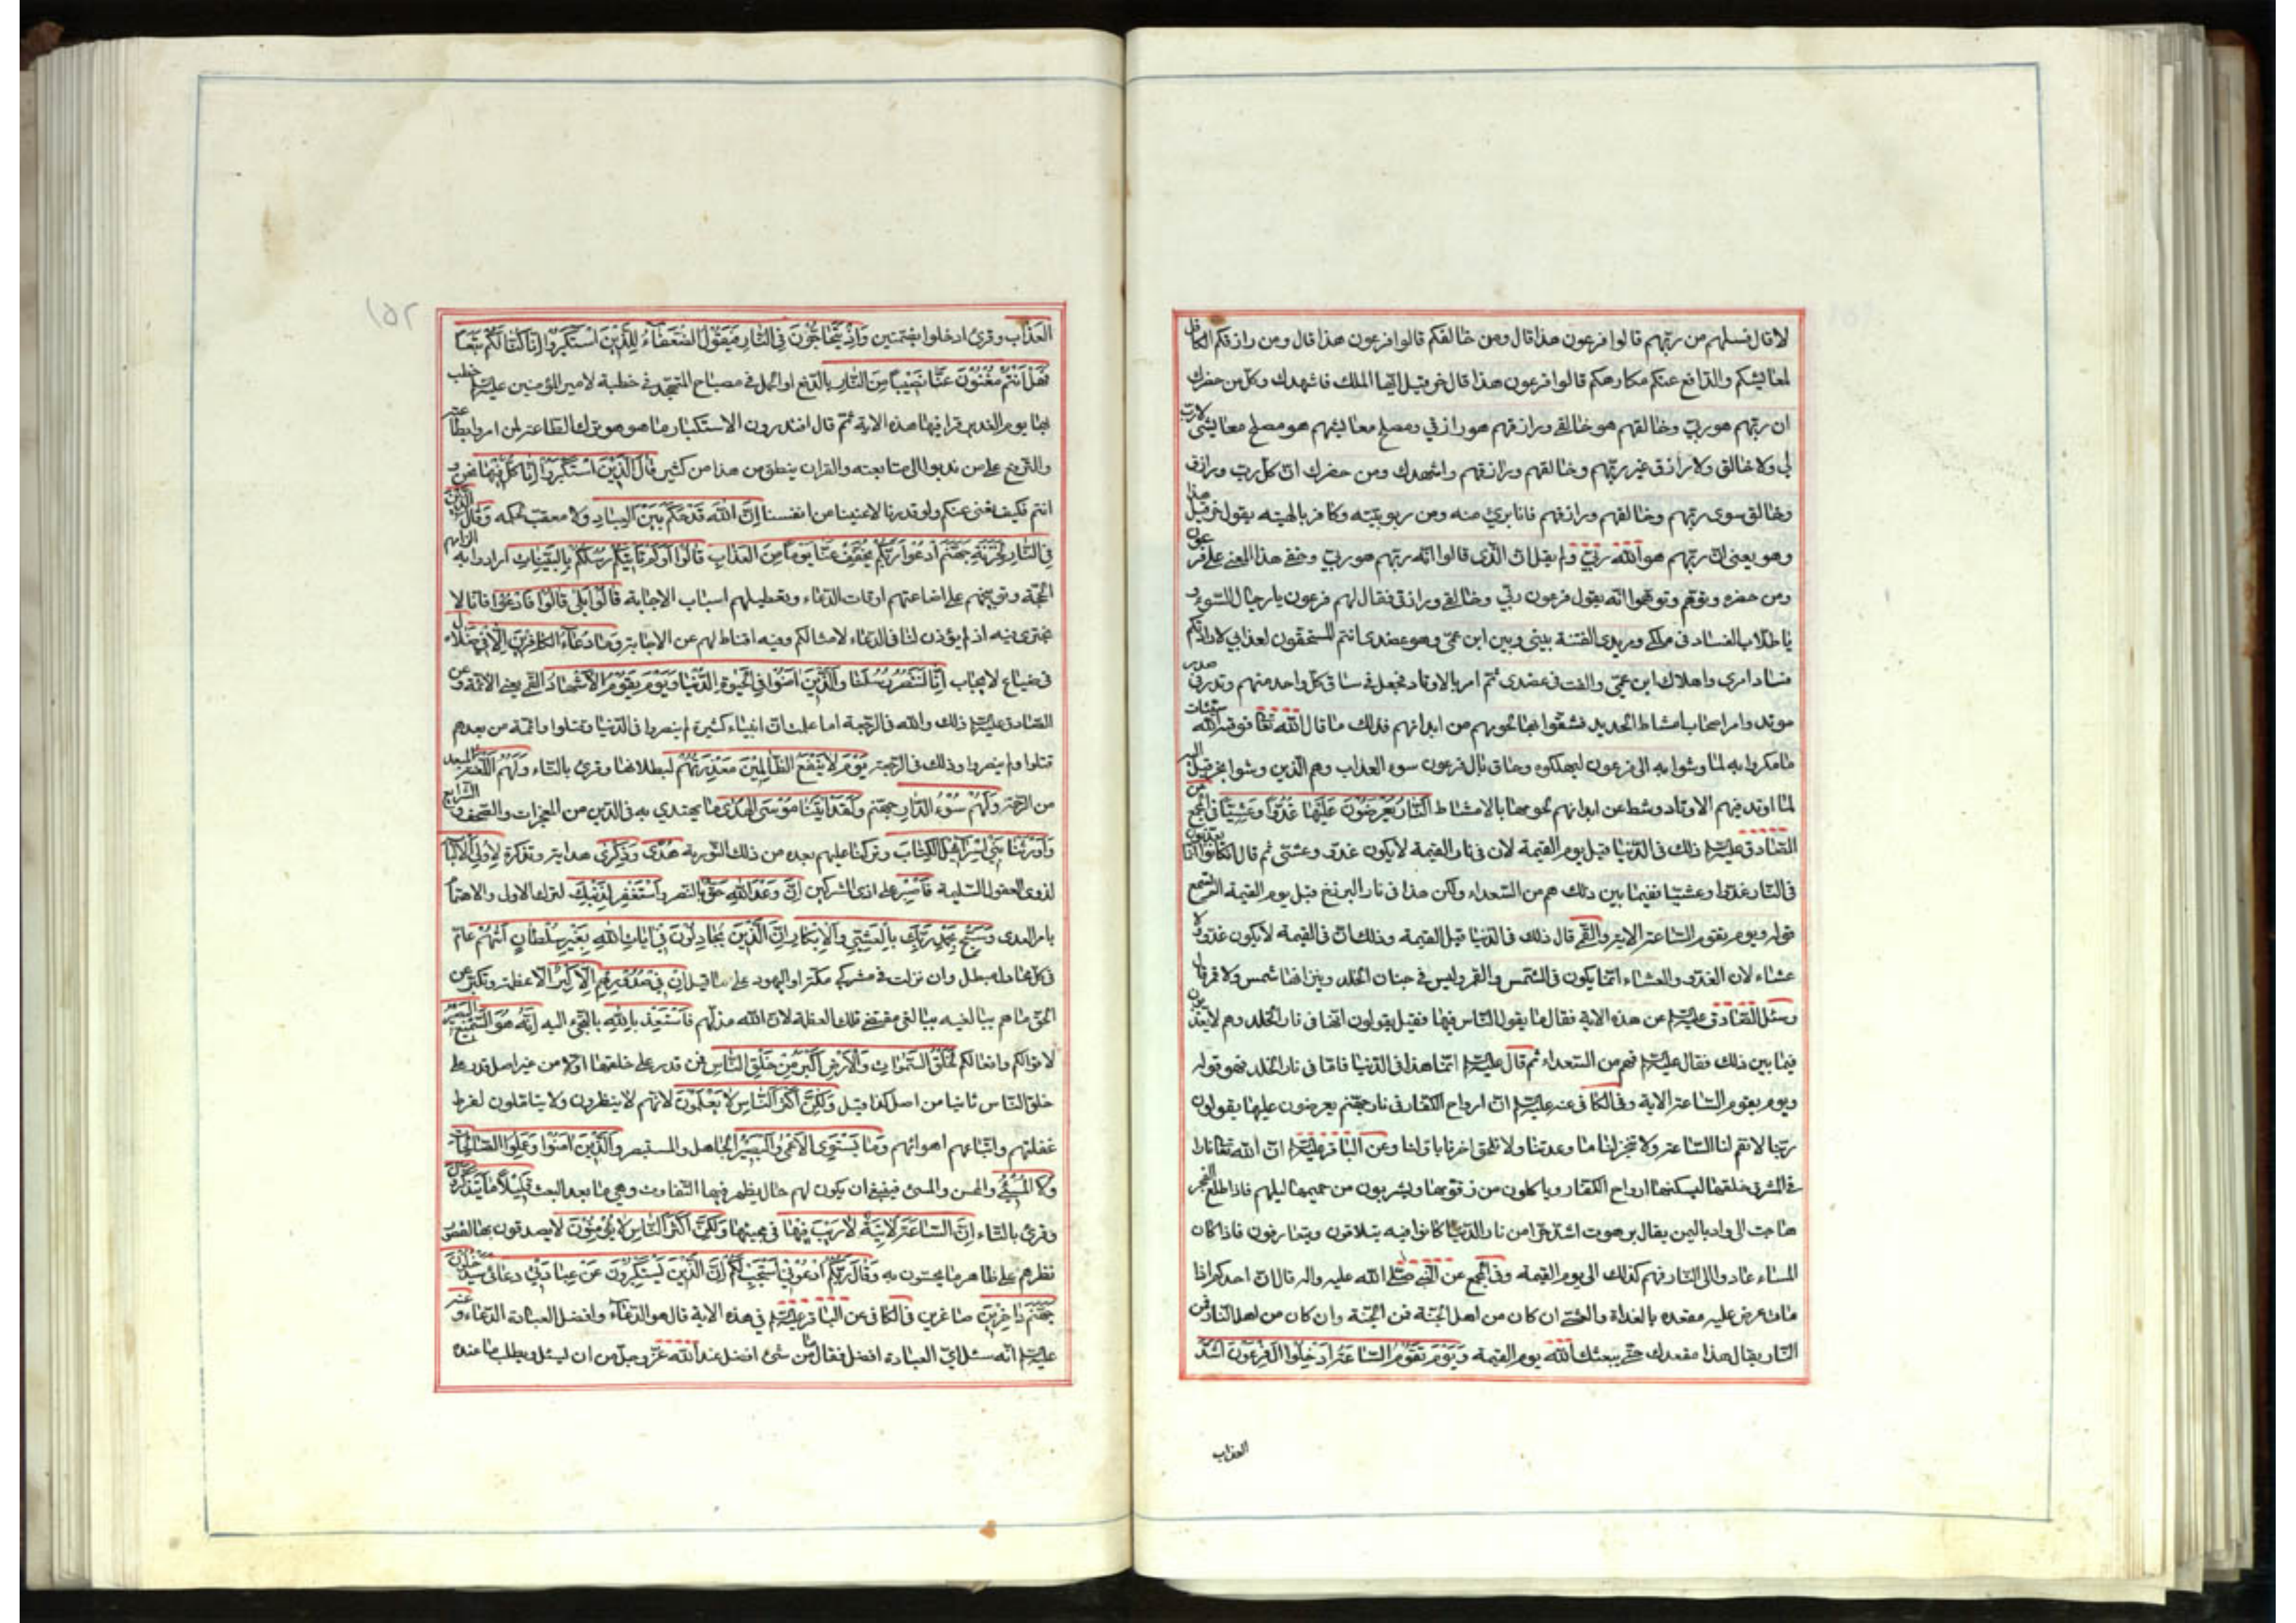 لا قال فسلهم من ربهم قالوا فرعون هذا قال ومن خالقكم قالوا فرعون هذا قال ومن رازقكم الكافل
لمعايشكم والدافع عنكم مكارهكم قالوا فرعون هذا قال خربيل ايها الملك فاشهدك وكل من حضرك
ان ربهم هو ربي وخالقهم هو خالقي ورازقهم هو رازقي ومصلح معايشهم هو مصلح معايشي لا رب
لي ولا خالق ولا رازق غير ربهم وخالقهم ورازقهم واشهدك ومن حضرك ان كل رب ورازق
وخالق سوى ربهم وخالقهم ورازقهم فانا برئ منه ومن ربوبيته وكافر بالهيته يقول خربيل هذا
وهو يعني ان ربهم هو الله ربي ولم يقل ان الذي قالوا انه ربهم هو ربي وخفي هذا المعنى على فرعون
ومن حضره وتوهم وتوهموا انه يقول فرعون ربي وخالقي ورازقي فقال لهم فرعون يا رجال السوء و
يا طلاب الفساد في ملكي ومريدي الفتنة بيني وبين ابن عمي وهو عضدي انتم المستحقون لعذابي لارادتكم
فساد امري واهلاك ابن عمي والفت في عضدي ثم امر بالاوتاد فجعل في ساق كل واحد منهم وتد وفي صدره
وتد وامر اصحاب امشاط الحديد فشقوا بها لحومهم من ابدانهم فذلك ما قال الله تعا فوقيه الله سيئات
ما مكروا به لما وشوا به الى فرعون ليهلكوه وحاق بال فرعون سوء العذاب وهم الذين وشوا بخربيل اليه
لما اوتد فيهم الاوتاد ومشط عن ابدانهم لحومها بالامشاط النار يعرضون عليها غدوا وعشيا في المجمع عن
الصادق عليه السلم ذلك في الدنيا قبل يوم القيمة لان في نار القيمة لا يكون غدو وعشي ثم قال ان كانوا انما يعذبون
في النار غدوا وعشيا ففيما بين ذلك هم من السعداء ولكن هذا في نار البرزخ قبل يوم القيمة الم تسمع
قوله ويوم تقوم الساعة الاية والقمي قال ذلك في الدنيا قبل القيمة وذلك ان في القيمة لا يكون غدو ولا
عشاء لان الغدو والعشاء انما يكون في الشمس والقمر وليس في جنان الخلد ونيرانها شمس ولا قمر قال
وسئل الصادق عليه السلم عن هذه الاية فقال ما يقول الناس فيها فقيل يقولون انها في نار الخلد وهم لا يعذبون
فيما بين ذلك فقال عليه السلم فهم من السعداء ثم قال عليه السلم انما هذا في الدنيا فاما في نار الخلد فهو قوله
ويوم يقوم الساعة الاية وفي الكافي عنه عليه السلم ان ارواح الكفار في نار جهنم يعرضون عليها يقولون
ربنا لا تقم لنا الساعة ولا تنجز لنا ما وعدتنا ولا تلحق اخرنا باولنا وعن الباقر عليه السلم ان الله تعا نارا
في المشرق خلقها ليسكنها ارواح الكفار وياكلون من زقومها ويشربون من حميمها ليلهم فاذا طلع الفجر
هاجت الى واد باليمن يقال برهوت اشد حرا من نار الدنيا كانوا فيه يتلاقون ويتعارفون فاذا كان
المساء عادوا الى النار فهم كذلك الى يوم القيمة وفي المجمع عن النبي صلى الله عليه واله قال ان احدكم اذا
مات عرض عليه مقعده بالغداة والعشي ان كان من اهل الجنة فمن الجنة وان كان من اهل النار فمن
النار يقال هذا مقعدك حتى يبعثك الله يوم القيمة وَيَوْمَ تَقُومُ السَّاعَةُ اَدْخِلُوا الَ فِرْعَوْنَ اَشَدَّ
العذاب
١٥٢
العَذَابِ وقرئ ادخلوا بضمتين وَاِذْ يَتَحَاجُّونَ فِي النَّارِ فَيَقُولُ الضُّعَفَاءُ لِلَّذِينَ اسْتَكْبَرُوا اِنَّا كُنَّا لَكُمْ تَبَعًا
فَهَلْ اَنْتُمْ مُغْنُونَ عَنَّا نَصِيبًا مِنَ النَّارِ بالدفع او الحمل في مصباح المتهجد في خطبة لامير المؤمنين عليه السلم خطب
بها يوم الغدير قرا فيها هذه الاية ثم قال افتدرون الاستكبار ما هو هو ترك الطاعة لمن امروا بطاعته
والترفع على من ندبوا الى متابعته والقران ينطق من هذا من كثير قَالَ الَّذِينَ اسْتَكْبَرُوا اِنَّا كُلٌّ فِيهَا نحن و
انتم فكيف نغني عنكم ولو قدرنا لاغنينا من انفسنا اِنَّ اللهَ قَدْ حَكَمَ بَيْنَ الْعِبَادِ ولا معقب لحكمه وَقَالَ الَّذِينَ
فِي النَّارِ لِخَزَنَةِ جَهَنَّمَ ادْعُوا رَبَّكُمْ يُخَفِّفْ عَنَّا يَوْمًا مِنَ الْعَذَابِ قَالُوا اَوَلَمْ تَأْتِيكُمْ رُسُلُكُمْ بِالْبَيِّنَاتِ ارادوا به الزامهم
الحجة وتوبيخهم على اضاعتهم اوقات الدعاء وتعطيلهم اسباب الاجابة قَالُوا بَلَى قَالُوا فَادْعُوا فانا لا
نجترئ فيه اذ لم يؤذن لنا في الدعاء لامثالكم وفيه اقناط لهم عن الاجابة وَمَا دُعَاءُ الْكَافِرِينَ اِلَّا فِي ضَلَالٍ
في ضياع لا يجاب اِنَّا لَنَنْصُرُ رُسُلَنَا وَالَّذِينَ اٰمَنُوا فِي الْحَيٰوةِ الدُّنْيَا وَيَوْمَ يَقُومُ الْاَشْهَادُ القمي يعني الائمة وعن
الصادق عليه السلم ذلك والله في الرجعة اما علمت ان انبياء كثيرة لم ينصروا في الدنيا وقتلوا وائمة من بعدهم
قتلوا ولم ينصروا وذلك في الرجعة يَوْمَ لَا يَنْفَعُ الظَّالِمِينَ مَعْذِرَتُهُمْ لبطلانها وقرئ بالتاء وَلَهُمُ اللَّعْنَةُ البعد
من الرحمة وَلَهُمْ سُوءُ الدَّارِ جهنم وَلَقَدْ اٰتَيْنَا مُوسَى الْهُدَى ما يهتدي به في الدين من المعجزات والصحف والشرايع
وَاَوْرَثْنَا بَنِي اِسْرَائِيلَ الْكِتَابَ وتركنا عليهم بعده من ذلك التورية هُدًى وَذِكْرَى هداية وتذكرة لِاُولِي الْاَلْبَابِ
لذوي العقول السليمة فَاصْبِرْ على اذى المشركين اِنَّ وَعْدَ اللهِ حَقٌّ بالنصر وَاسْتَغْفِرْ لِذَنْبِكَ لترك الاولى والاهتمام
بامر العدى وَسَبِّحْ بِحَمْدِ رَبِّكَ بِالْعَشِيِّ وَالْاِبْكَارِ اِنَّ الَّذِينَ يُجَادِلُونَ فِي اٰيَاتِ اللهِ بِغَيْرِ سُلْطَانٍ اَتَاهُمْ عام
في كل مجادل مبطل وان نزلت في مشركي مكة او اليهود على ما قيل اِنْ فِي صُدُورِهِمْ اِلَّا كِبْرٌ الا عظمة وتكبر عن
الحق مَا هُمْ بِبَالِغِيهِ ببالغي مقتضى تلك العظمة لان الله مذلهم فَاسْتَعِذْ بِاللهِ بالتجئ اليه اِنَّهُ هُوَ السَّمِيعُ الْبَصِيرُ
لاقوالكم وافعالكم لَخَلْقُ السَّمٰوَاتِ وَالْاَرْضِ اَكْبَرُ مِنْ خَلْقِ النَّاسِ فمن قدر على خلقها اولا من غير اصل قدر على
خلق الناس ثانيا من اصل كذا قيل وَلٰكِنَّ اَكْثَرَ النَّاسِ لَا يَعْلَمُونَ لانهم لا ينظرون ولا يتاملون لفرط
غفلتهم واتباعهم اهوائهم وَمَا يَسْتَوِي الْاَعْمَى وَالْبَصِيرُ الجاهل والمستبصر وَالَّذِينَ اٰمَنُوا وَعَمِلُوا الصَّالِحَاتِ
وَلَا الْمُسِيءُ والمحسن والمسئ فينبغي ان يكون لهم حال يظهر فيها التفاوت وهي ما بعد البعث قَلِيلًا مَا يَتَذَكَّرُونَ
وقرئ بالتاء اِنَّ السَّاعَةَ لَاٰتِيَةٌ لَا رَيْبَ فِيهَا في مجيئها وَلٰكِنَّ اَكْثَرَ النَّاسِ لَا يُؤْمِنُونَ لا يصدقون بها لقصور
نظرهم على ظاهر ما يحسون به وَقَالَ رَبُّكُمُ ادْعُونِي اَسْتَجِبْ لَكُمْ اِنَّ الَّذِينَ يَسْتَكْبِرُونَ عَنْ عِبَادَتِي دعائي سَيَدْخُلُونَ
جَهَنَّمَ دَاخِرِينَ صاغرين في الكافي عن الباقر عليه السلم في هذه الاية قال هو الدعاء وافضل العبادة الدعاء وعنه
عليه السلم انه سئل اي العبادة افضل فقال ما من شئ افضل عند الله عز وجل من ان يسئل ويطلب ما عنده